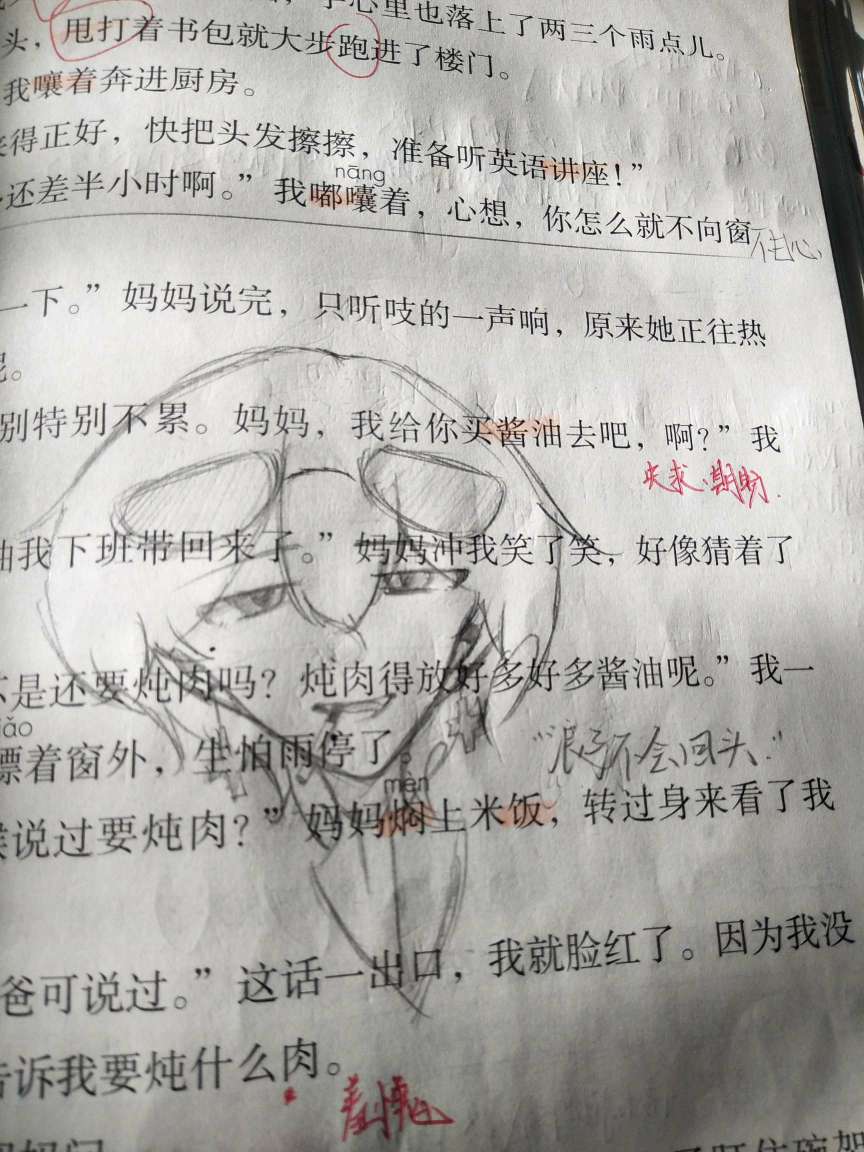 心里也落上了两三个雨点儿。
头，甩打着书包就大步跑进了楼门。
我嚷着奔进厨房。
得正好，快把头发擦擦，准备听英语讲座！”
nāng
还差半小时啊。”我嘟囔着，心想，你怎么就不向窗
一下。”妈妈说完，只听吱的一声响，原来她正往热
呢。
别特别不累。妈妈，我给你买酱油去吧，啊？”我
央求、期盼
油我下班带回来了。”妈妈冲我笑了笑，好像猜着了
不是还要炖肉吗？炖肉得放好多好多酱油呢。”我一
iǎo
瞟着窗外，生怕雨停了。
“浪子不会回头.”
mèn
候说过要炖肉？”妈妈焖上米饭，转过身来看了我
爸可说过。”这话一出口，我就脸红了。因为我没
告诉我要炖什么肉。
羞愧